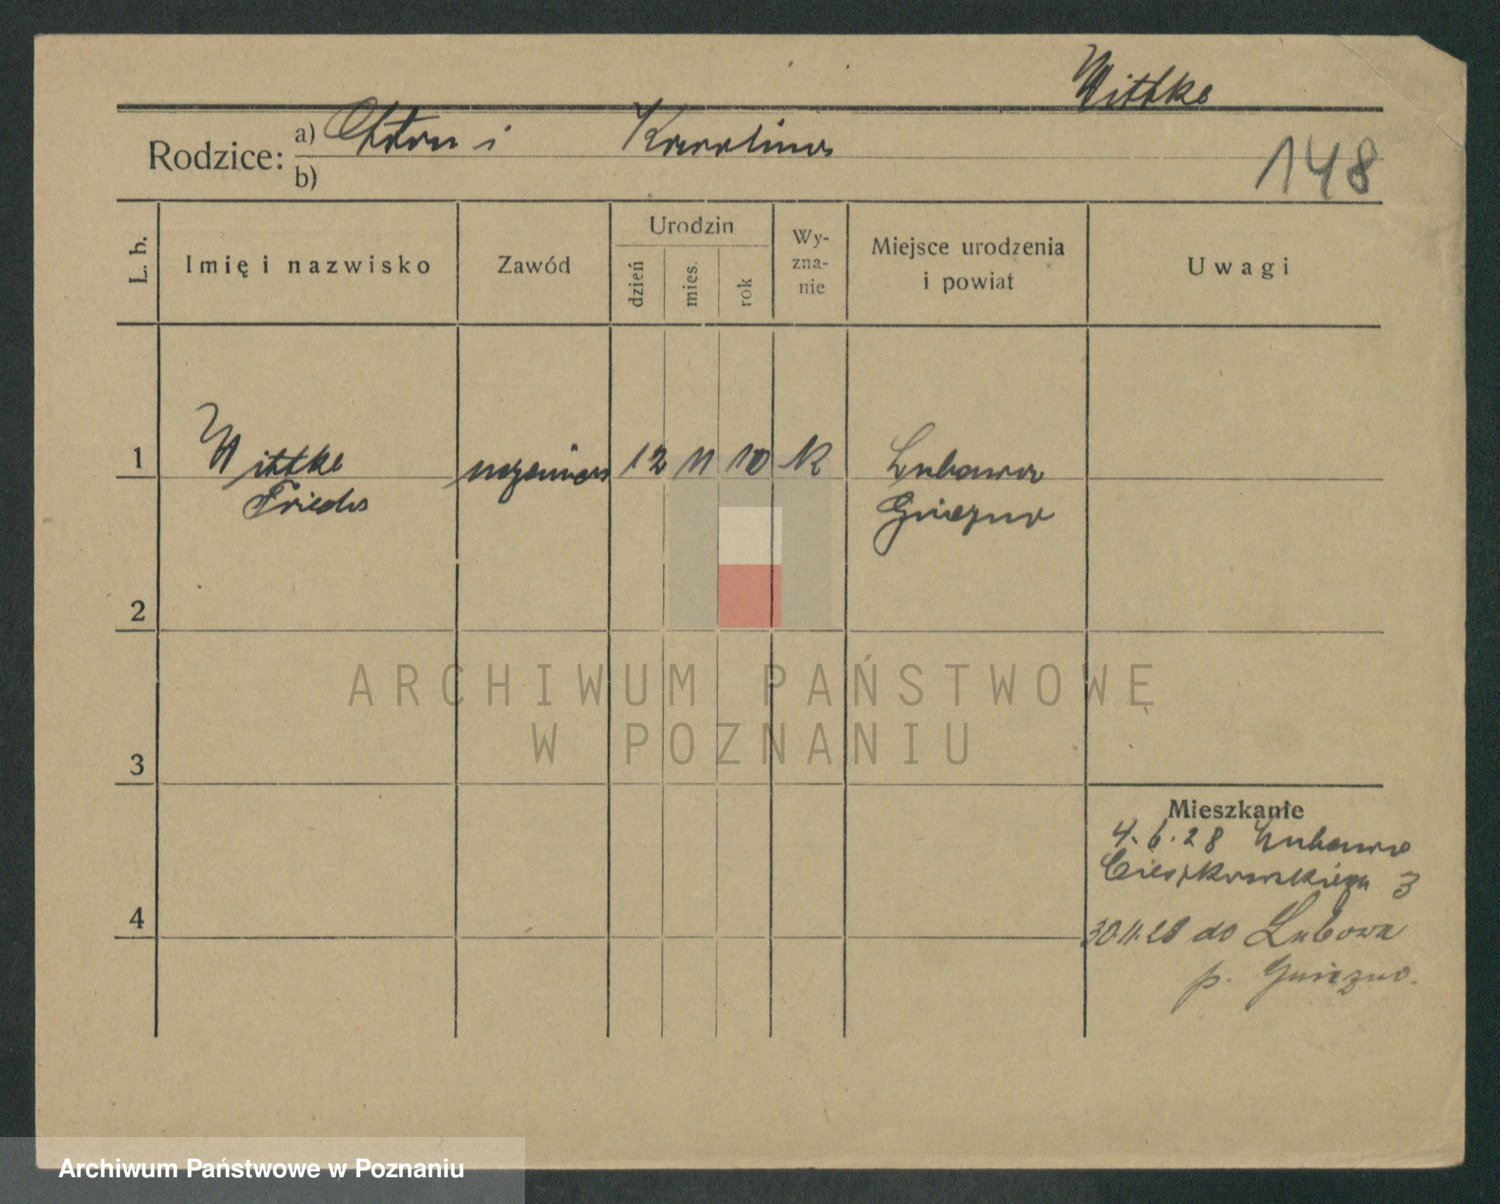 Wittke
Rodzice: a) i Karolina
b)
148
L. b.
Imię i nazwisko
Zawód
Urodzin
dzień
mies.
rok
Wy-
zna-
nie
Miejsce urodzenia
i powiat
Uwagi
1 Wittke uczenica 12 11 10 Lubowo
Frieda Gniezno
2
3
4
Mieszkanie
4.6.28 Lubowo
Cieszkowskiego 3
30.11.28 do Lubowa
p. Gniezno.
ARCHIWUM PAŃSTWOWE
W POZNANIU
Archiwum Państwowe w Poznaniu